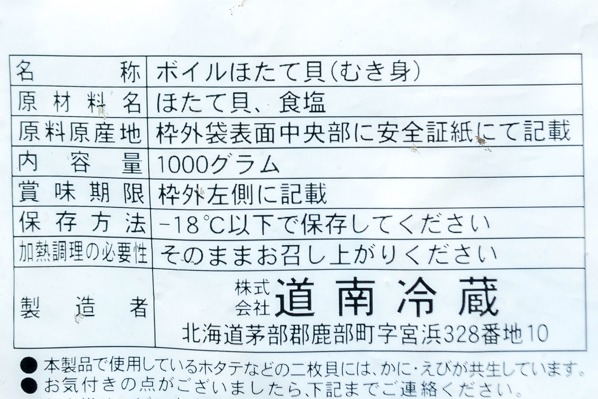 名称 ボイルほたて貝(むき身)
原材料名 ほたて貝、食塩
原料原産地 枠外袋表面中央部に安全証紙にて記載
内容量 1000グラム
賞味期限 枠外左側に記載
保存方法 -18℃以下で保存してください
加熱調理の必要性 そのままお召し上がりください
製造者 株式会社 道南冷蔵
北海道茅部郡鹿部町字宮浜328番地10
●本製品で使用しているホタテなどの二枚貝には、かに・えびが共生しています。
●お気付きの点がございましたら、下記までご連絡ください。